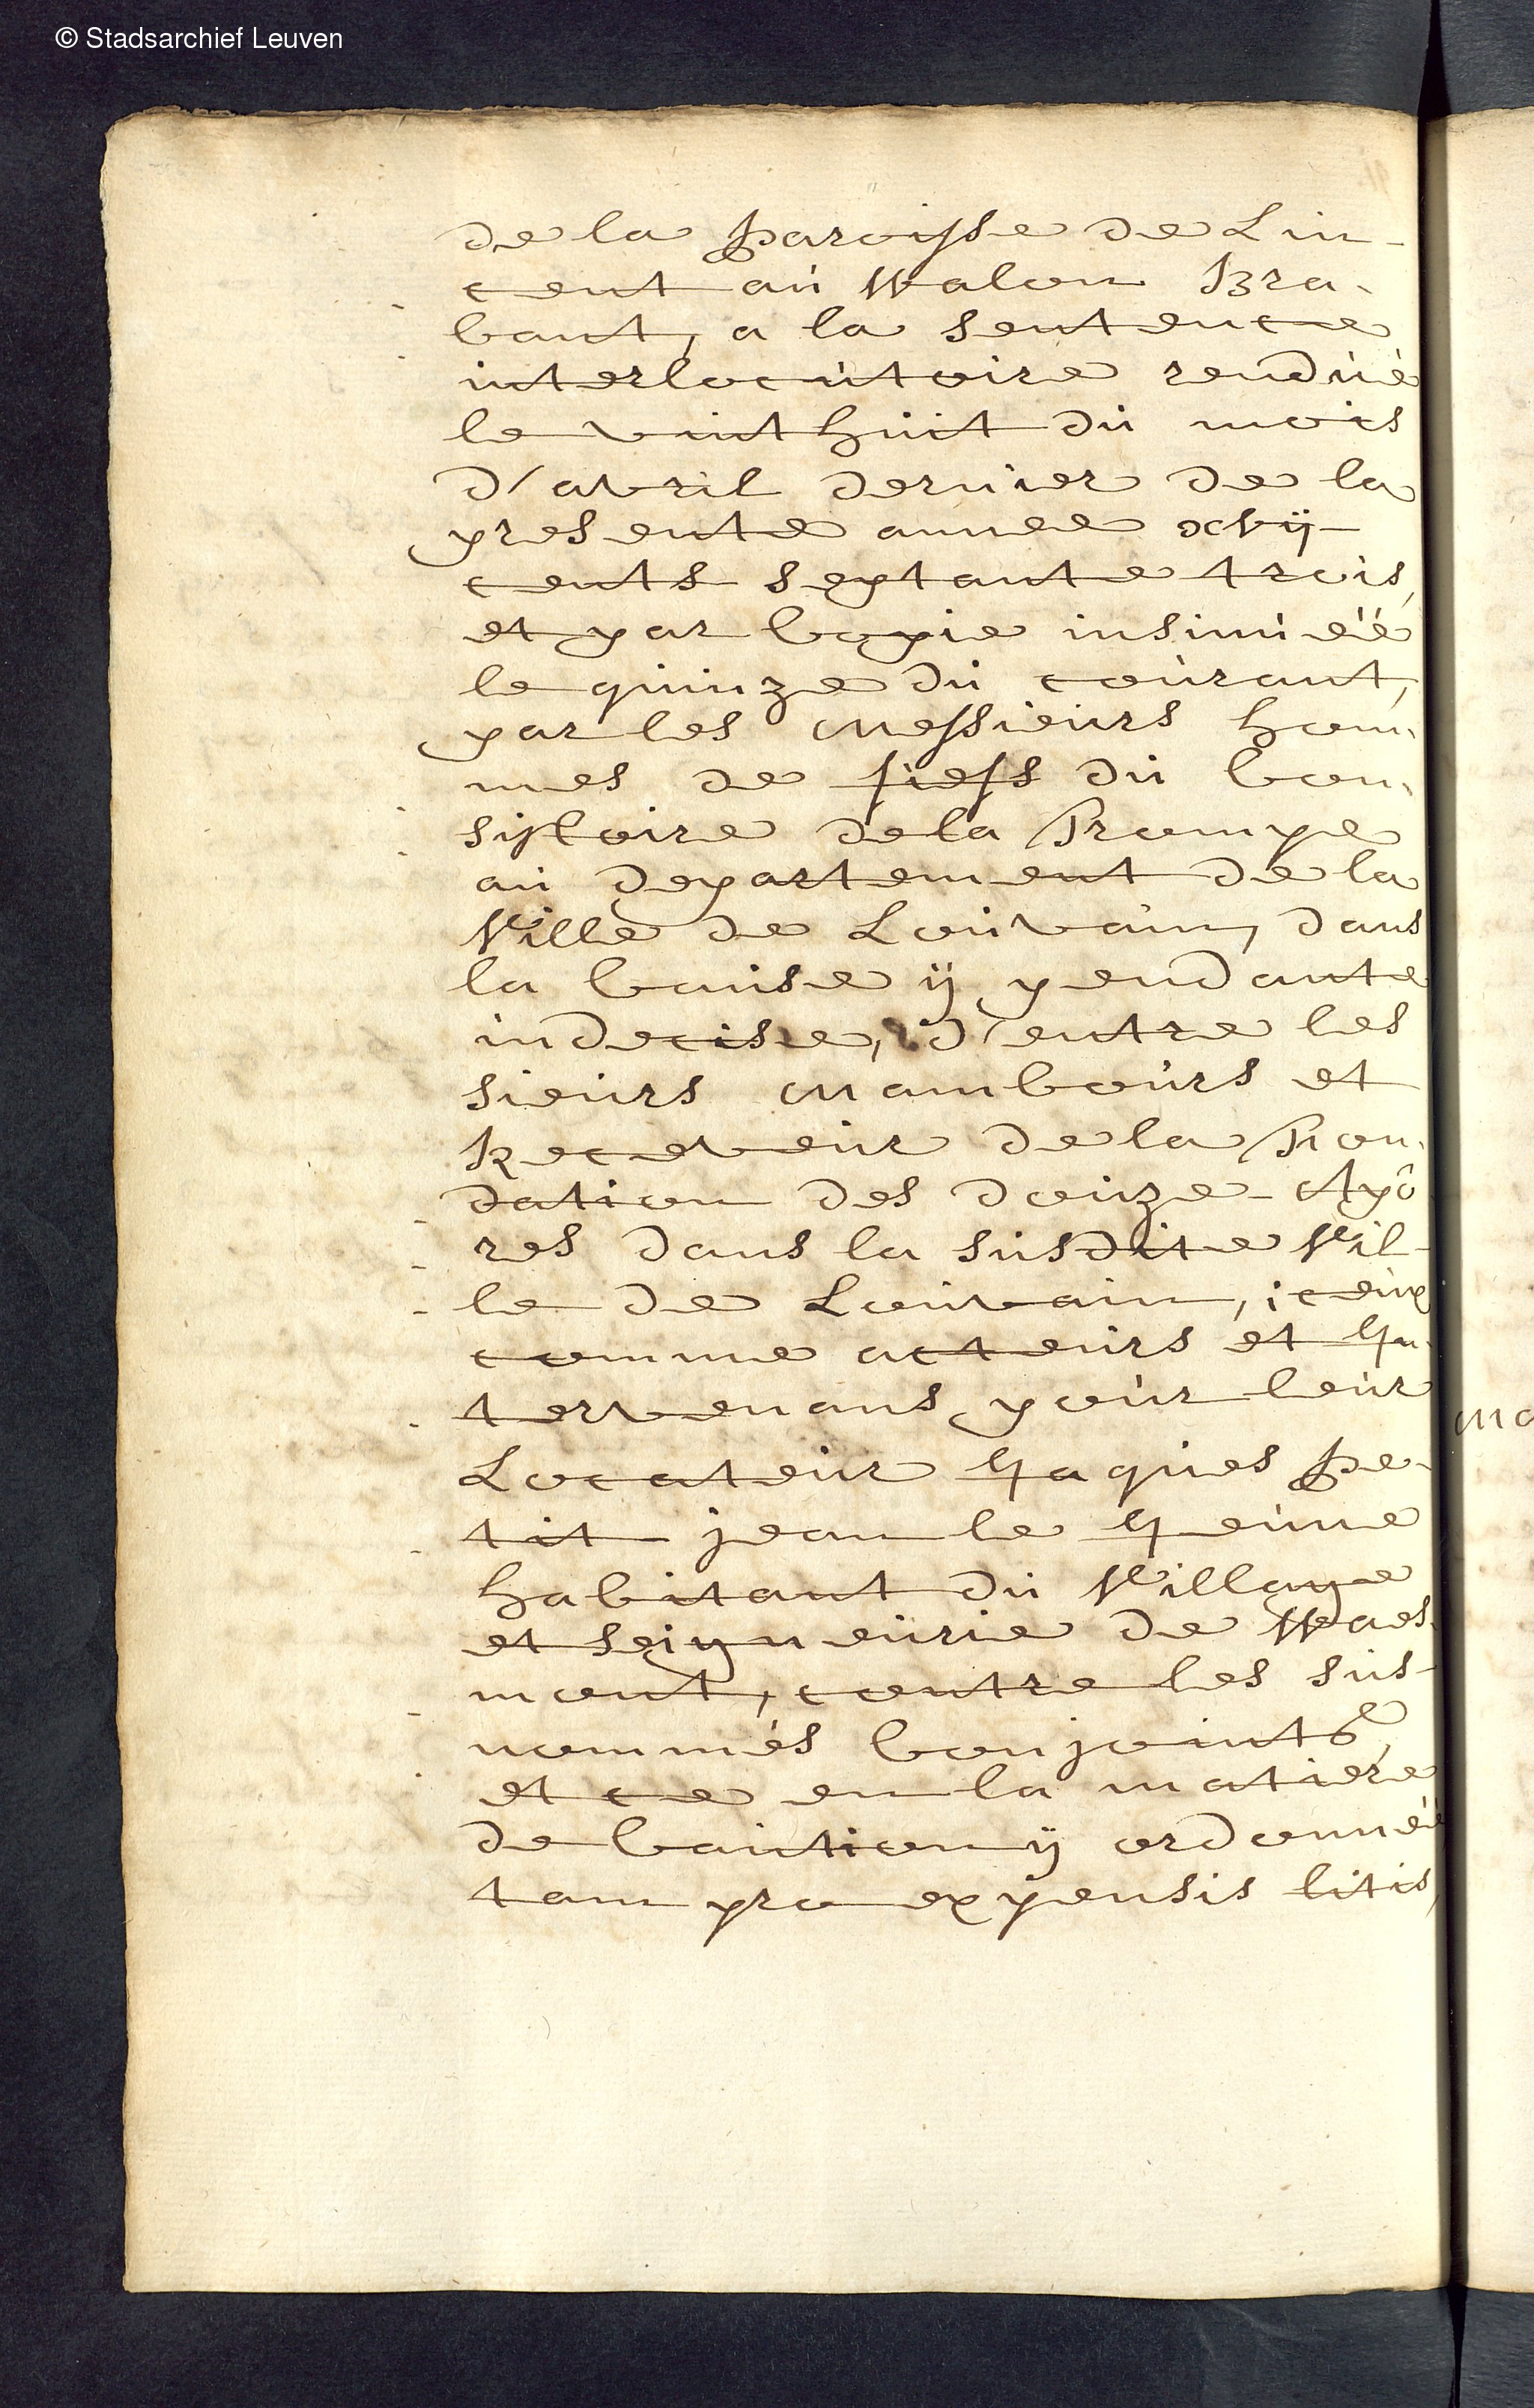 © Stadsarchief Leuven
de la Paroisse de Lin-
cent aú Walon Bra-
bant, a la sentence
interlocútoire rendúë
le vint húit dú mois
d'avril dernier de la
presente annee xvij-
cents septante trois,
et par Copie insinúéé
le qúinze dú coúrant,
par les Messieúrs hom-
mes de fiefs dú Con-
sistoire de la Trompe
aú departement de la
Ville de Loúvain, dans
la Caúse ij pendante
indecise, d'entre les
sieúrs Mamboúrs et
Receveúr de la Fon-
dation des doúze Apô-
res dans la súsdite Vil-
le de Loúvain, iceúx
comme acteúrs et In-
tervenans poúr leúr
Locateúr Jaqúes Pe-
tit jean le Jeúne
habitant dú Village
et seigneúrie de Waes-
mont, contre les sús-
nommés Conjoints,
et ce en la matiere
de Caútion ij ordonnéé
tam pro expensis litis,
Ma